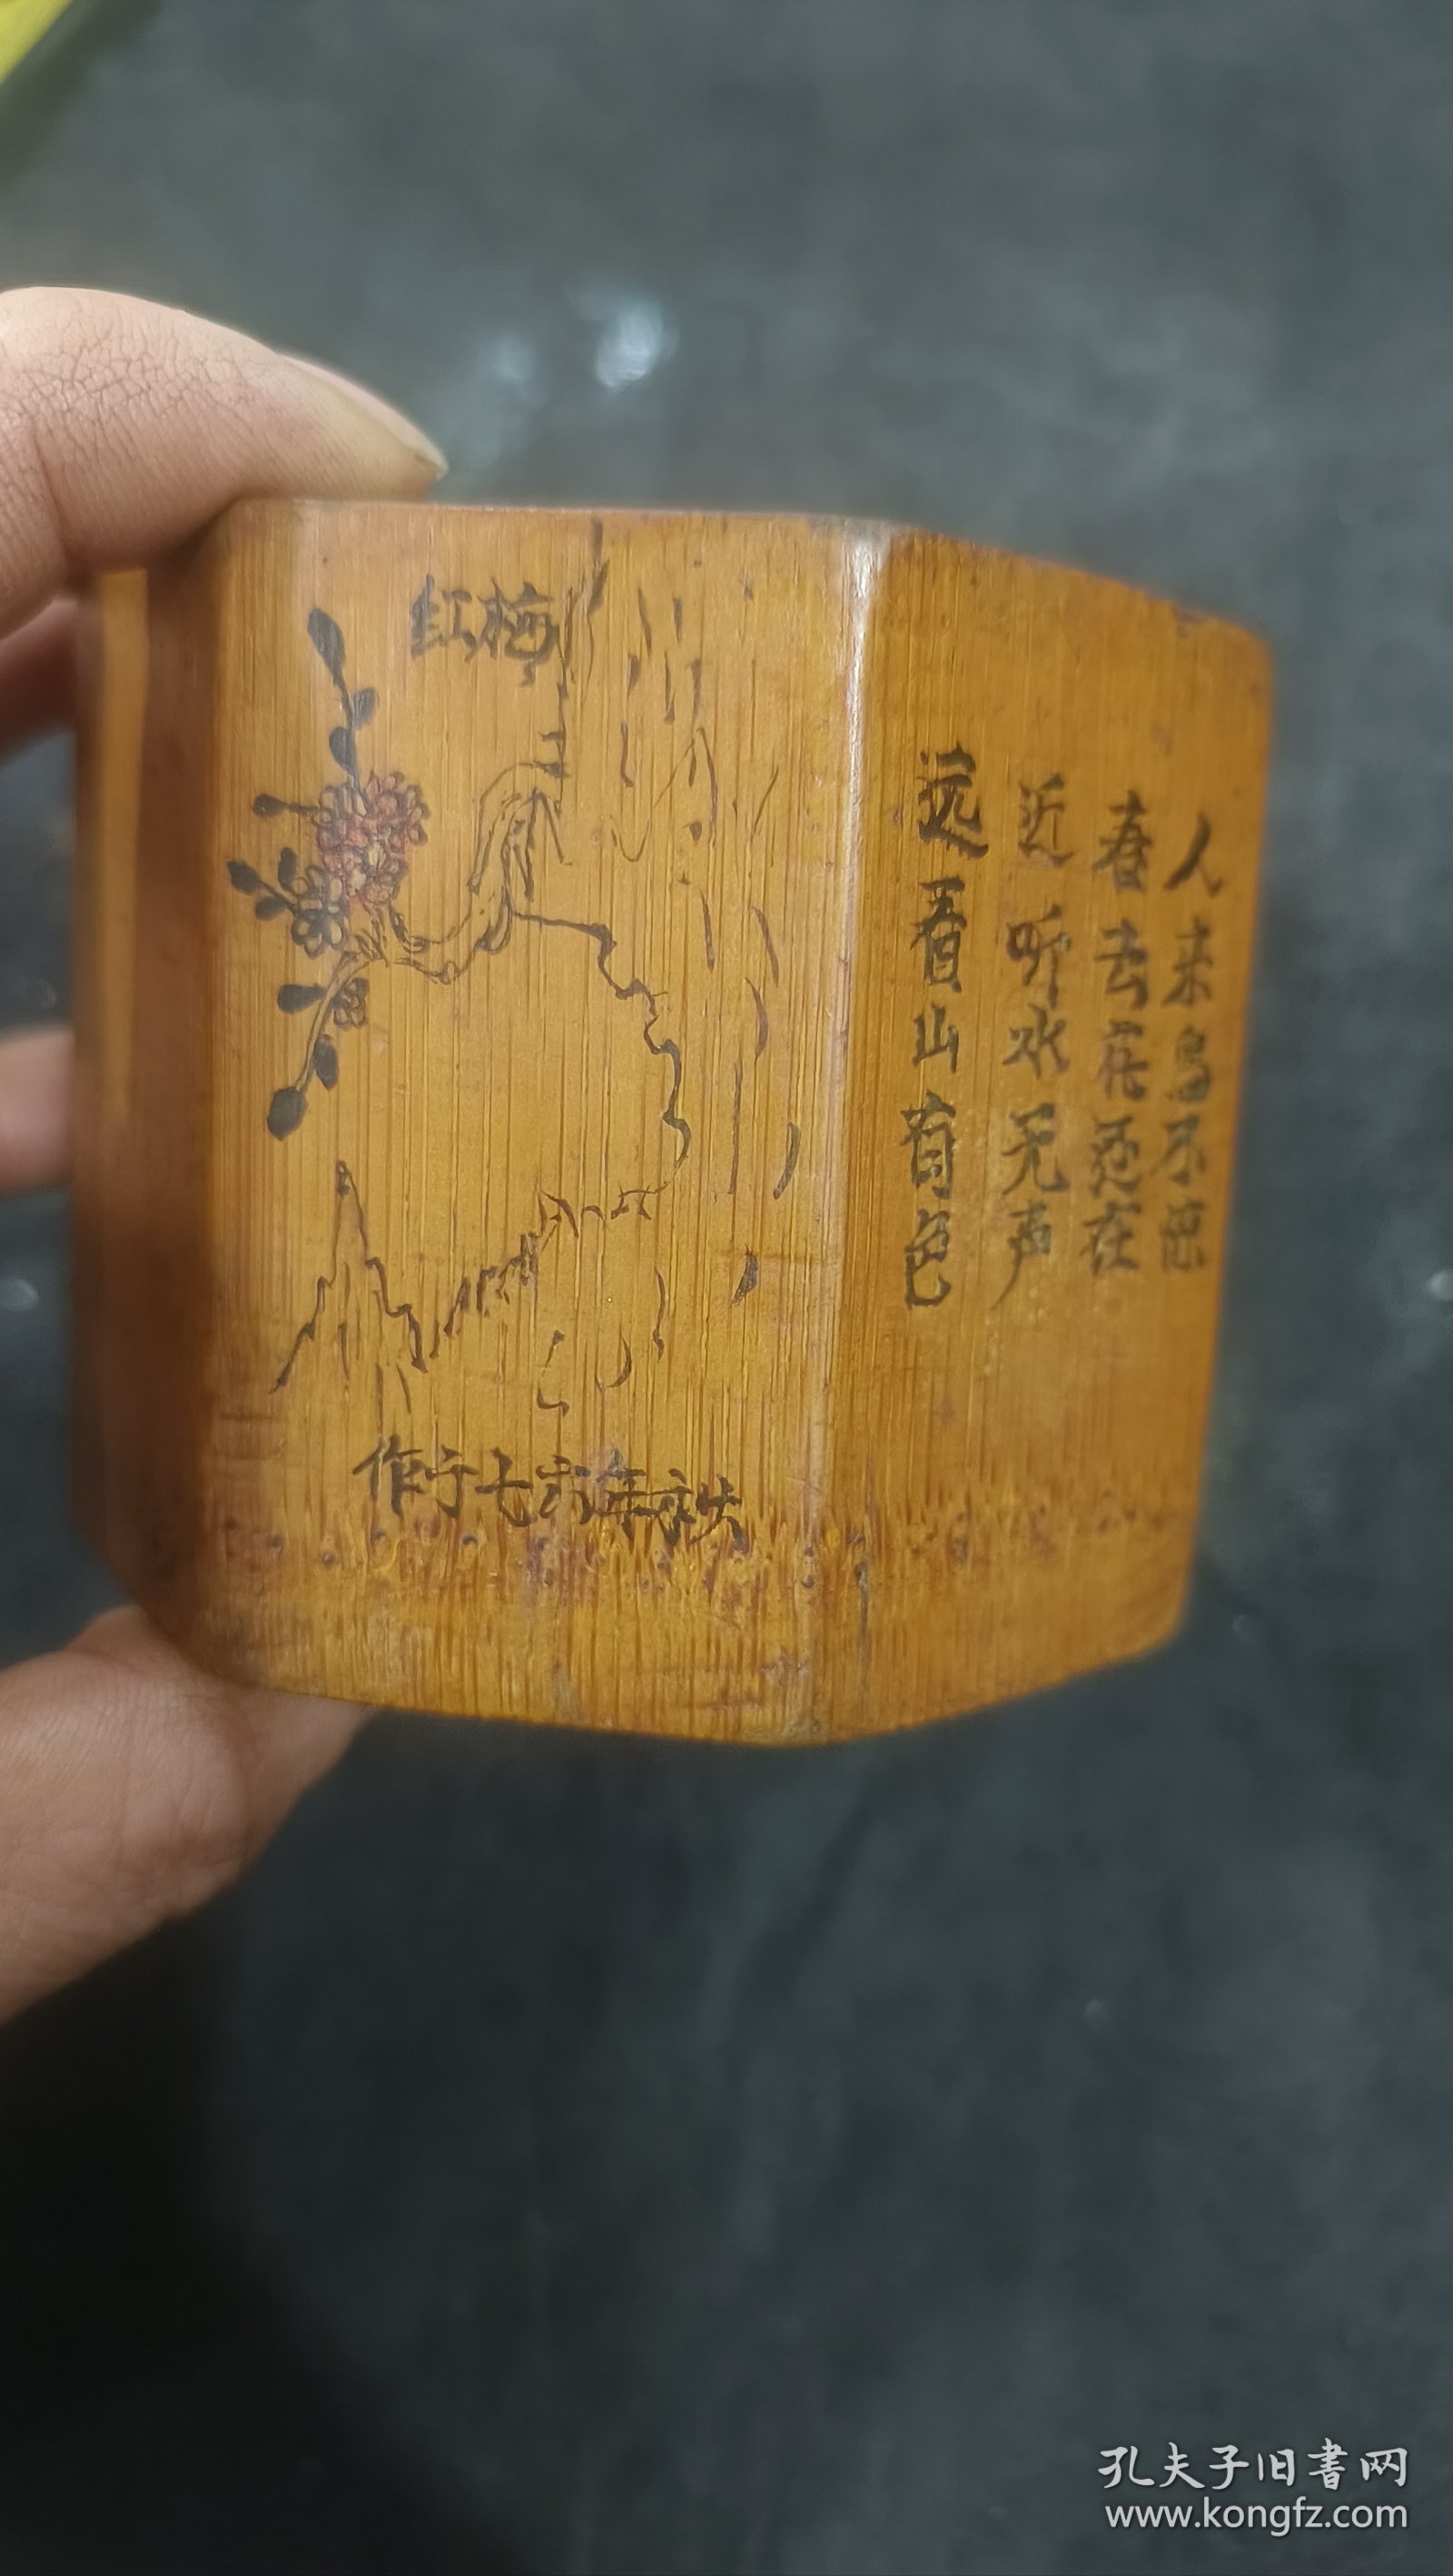 红梅
作于七六年
远看山有色
近听水无声
春去花还在
人来鸟不
孔夫子旧書网
www.kongfz.com